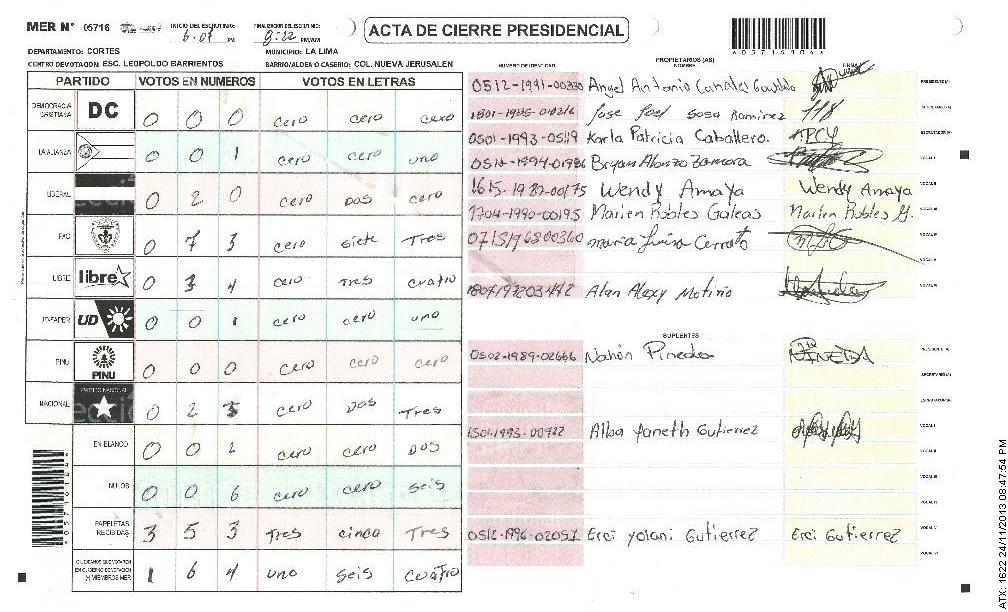 MER Nº 05716 INICIO DEL ESCRUTINIO: 6:07 PM FINALIZACION DEL ESCRUTINIO: 8:22 PM/AM ACTA DE CIERRE PRESIDENCIAL
DEPARTAMENTO: CORTES MUNICIPIO: LA LIMA
CENTRO DE VOTACION: ESC. LEOPOLDO BARRIENTOS BARRIO/ALDEA O CASERIO: COL. NUEVA JERUSALEN
PARTIDO VOTOS EN NUMEROS VOTOS EN LETRAS
DEMOCRACIA CRISTIANA DC 0 0 0 cero cero cero
LA ALIANZA 0 0 1 cero cero uno
LIBERAL 0 2 0 cero dos cero
PAC 0 7 3 cero siete Tres
LIBRE libre 0 3 4 cero Tres cuatro
UD-FAPER UD 0 0 1 cero cero uno
PINU PINU 0 0 0 cero cero cero
NACIONAL PARTIDO NACIONAL 0 2 3 cero Dos Tres
EN BLANCO 0 0 2 cero cero Dos
NULOS 0 0 6 cero cero seis
PAPELETAS RECIBIDAS 3 5 3 Tres cinco Tres
CIUDADANOS QUE VOTARON EN CUADERNO DE VOTACION (+) MIEMBROS MER 1 6 4 uno seis cuatro
PROPIETARIOS (AS)
NUMERO DE IDENTIDAD NOMBRE FIRMA
Angel Antonio Canales PRESIDENTE (A)
Jose Joel Sosa Ramirez SECRETARIO (A)
0501-1993-0549 Karla Patricia Caballero. ESCRUTADOR (A)
Bryan Alonzo Zamora VOCAL I
1615-1982-00175 Wendy Amaya Wendy Amaya VOCAL II
1704-1990-00195 Marien Robles Galeas Marien Robles G. VOCAL III
0715196800360 maria Luisa Cerrato VOCAL IV
VOCAL V
Alan Alexy Motiño VOCAL VI
SUPLENTES
0502-1989-02666 Nahún Pineda PINEDA PRESIDENTE (A)
SECRETARIO (A)
ESCRUTADOR (A)
Alba Yaneth Gutierrez VOCAL I
VOCAL II
VOCAL III
VOCAL IV
0512-1996-02051 Erci Yolani Gutierrez Erci Gutierrez VOCAL V
VOCAL VI
6057161046
6057161046
ATX: 1622 24/11/2013 08:47:54 PM